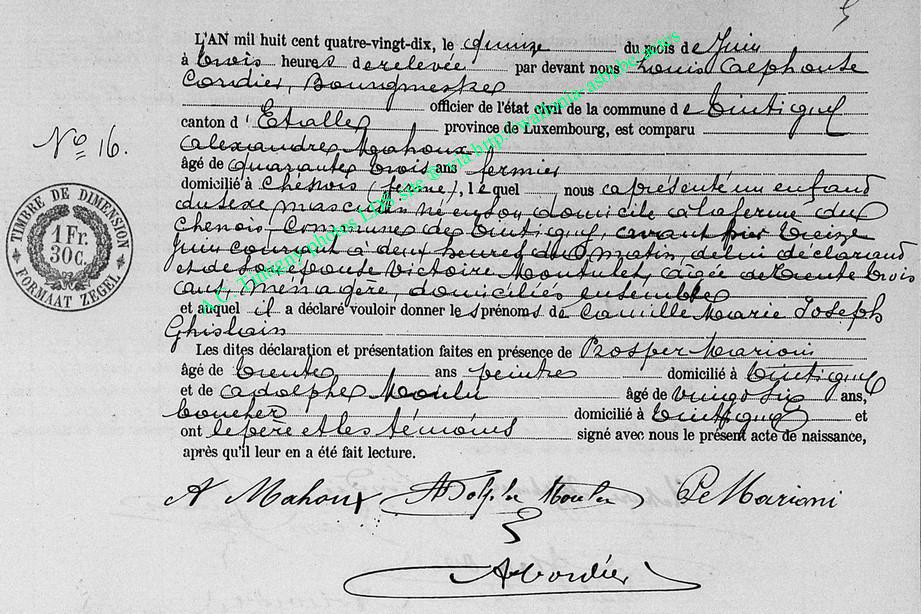 L'AN mil huit cent quatre-vingt-dix, le quinze du mois de Juin
à trois heures de relevée par devant nous Louis Alphonse
Cordier, Bourgmestre
officier de l'état civil de la commune de Tintigny
canton d'Etalle province de Luxembourg, est comparu
Alexandre Mahoux
âgé de quarante trois ans fermier
domicilié à Chenois (ferme), lequel nous a présenté un enfant
du sexe masculin né en son domicile à la ferme du
Chenois - Commune de Tintigny, avant hier treize
Juin courant à deux heures du matin, de lui déclarant
et de son épouse Victoire Moutulet, agée de trente trois
ans, ménagère, domiciliés ensemble
et auquel il a déclaré vouloir donner les prénoms de Camille Marie Joseph
Ghislain
Les dites déclaration et présentation faites en présence de Prosper Marioni
âgé de trente ans peintre domicilié à Tintigny
et de Adolphe Moulu âgé de vingt six ans,
boucher domicilié à Tintigny et
ont le père et les témoins signé avec nous le présent acte de naissance,
après qu'il leur en a été fait lecture.
No 16.
TIMBRE DE DIMENSION
1 Fr.
30c.
FORMAAT ZEGEL
A Mahoux Adolphe Moulu Pe Marioni
A Cordier